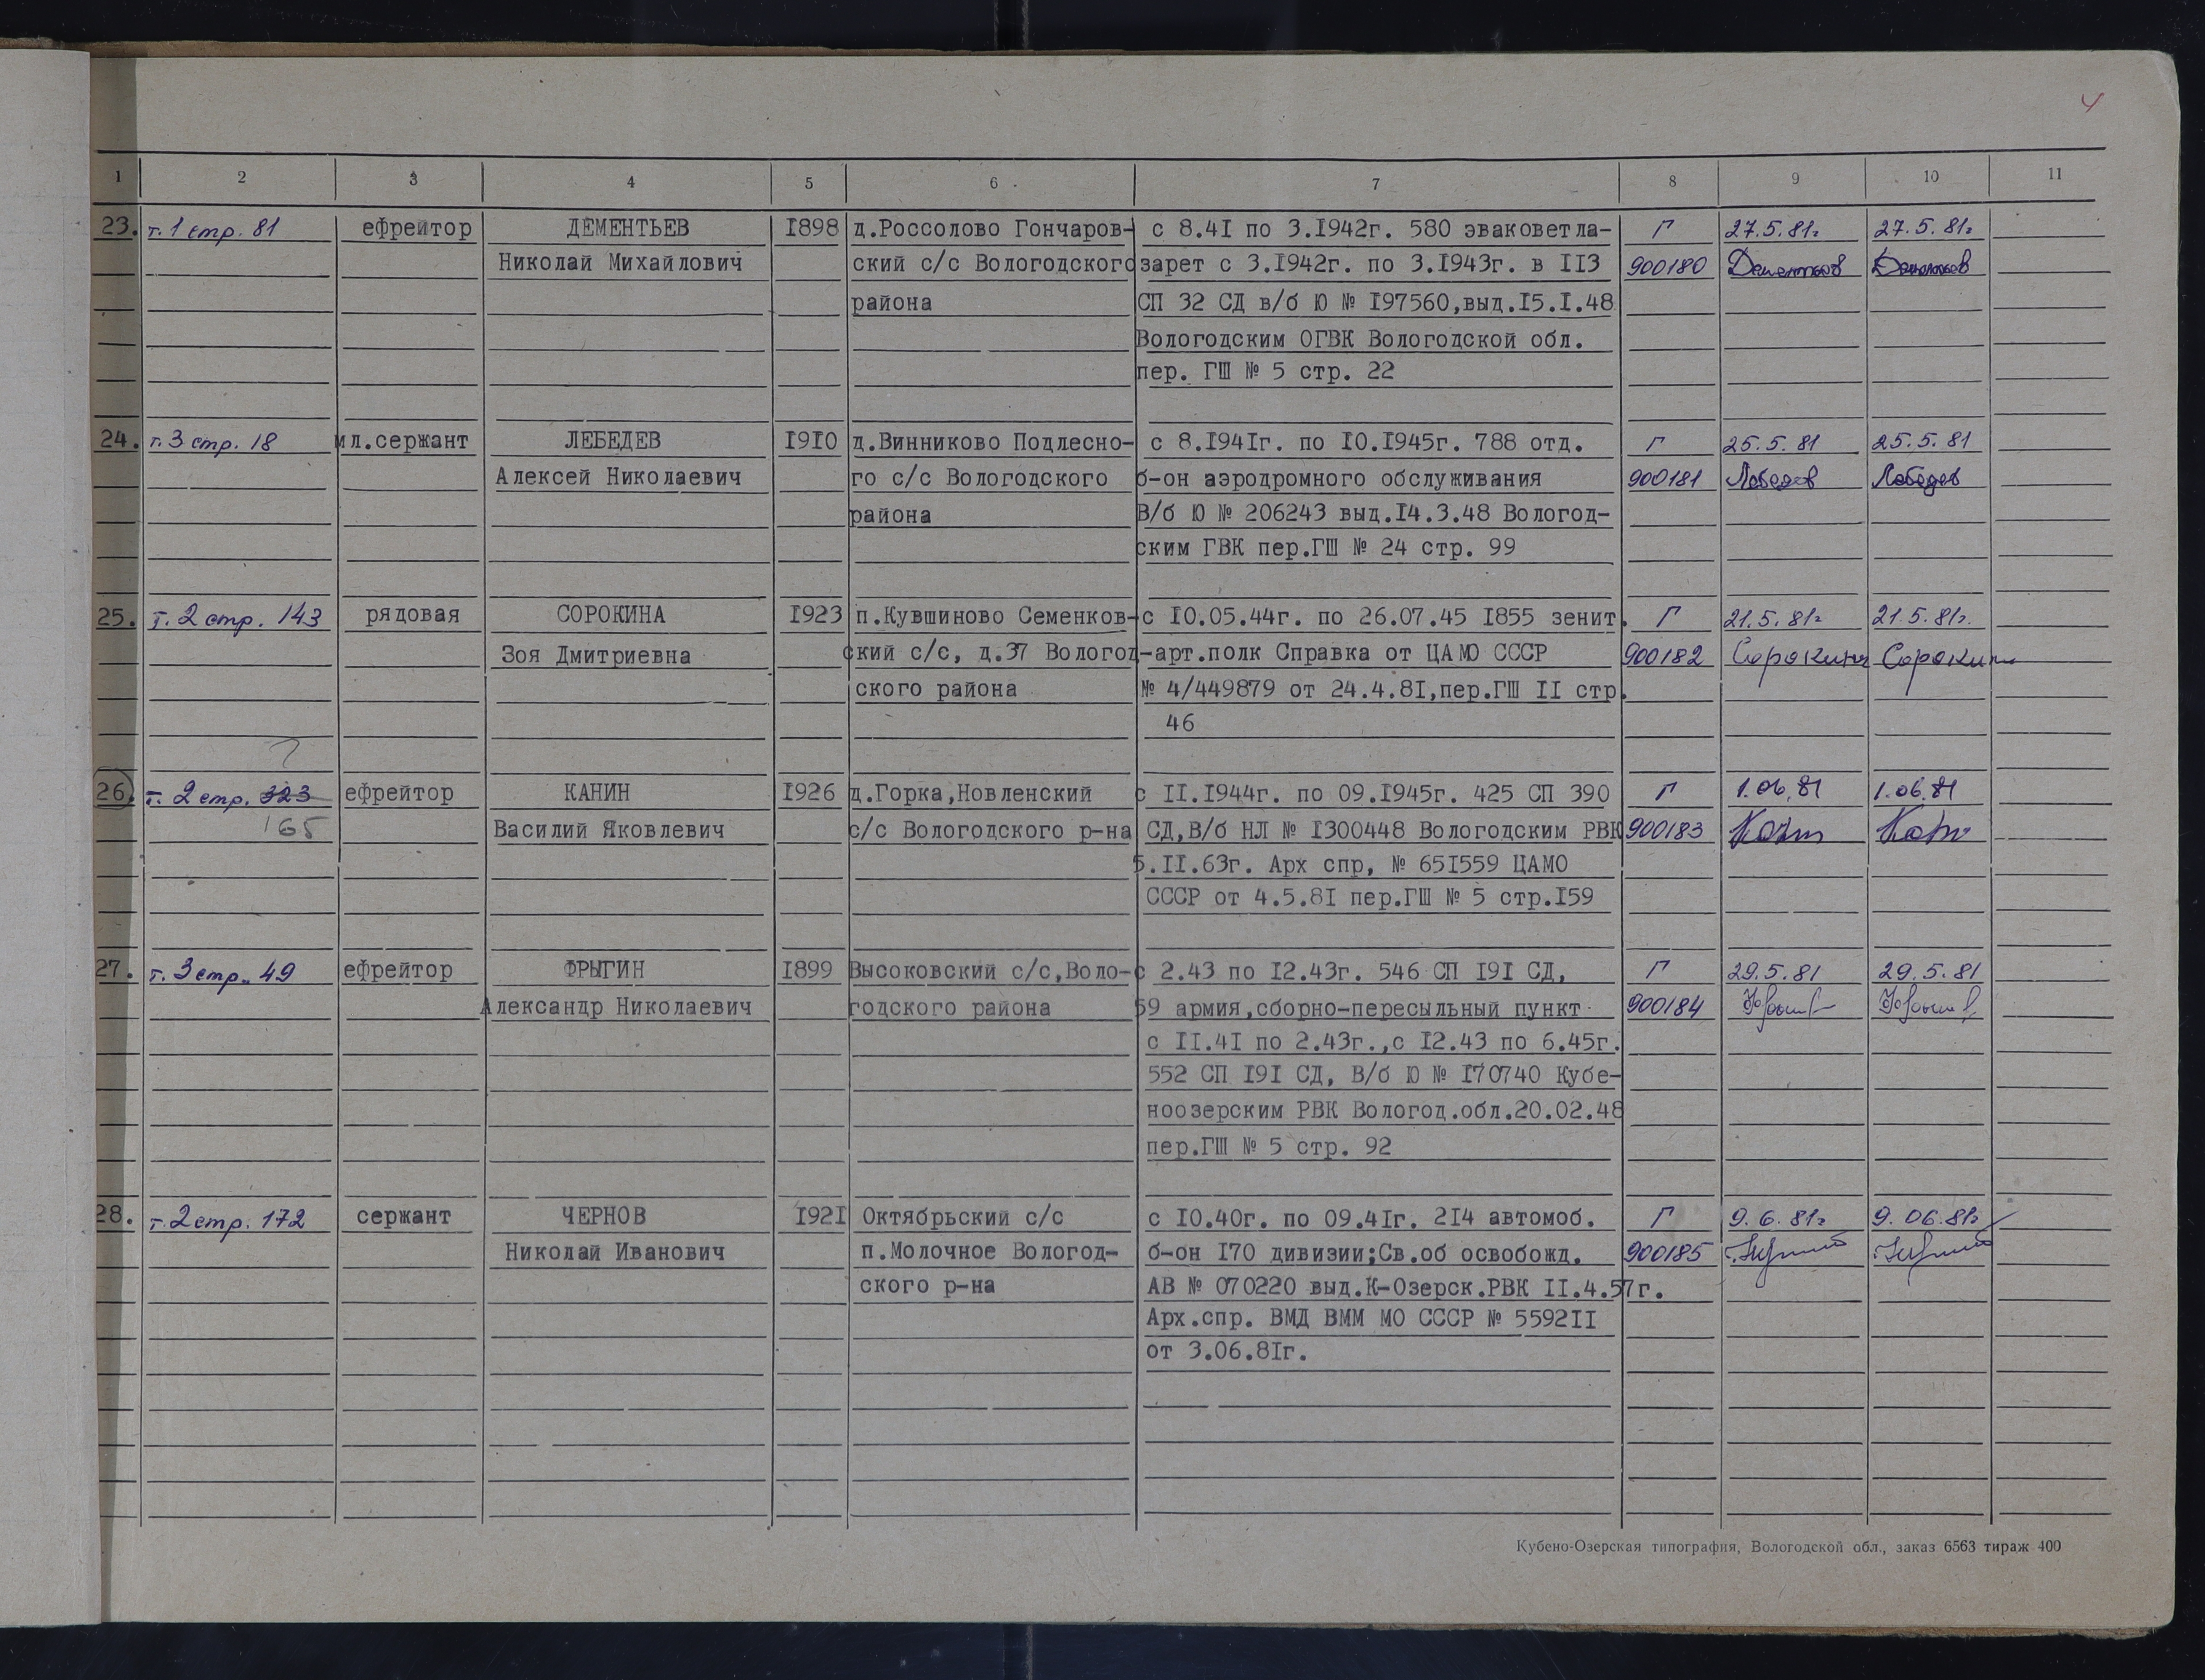 4
1 2 3 4 5 6 7 8 9 10 11
23. т.1 стр. 81 ефрейтор ДЕМЕНТЬЕВ 1898 д.Россолово Гончаров- с 8.41 по 3.1942г. 580 эваковетла- Г 27.5.81г 27.5.81г
Николай Михайлович ский с/с Вологодского зарет с 3.1942г. по 3.1943г. в 113 900180 Дементьев Дементьев
района СП 32 СД в/б Ю № 197560,выд.15.1.48
Вологодским ОГВК Вологодской обл.
пер. ГШ № 5 стр. 22
24. т.3 стр. 18 мл.сержант ЛЕБЕДЕВ 1910 д.Винниково Подлесно- с 8.1941г. по 10.1945г. 788 отд. Г 25.5.81 25.5.81
Алексей Николаевич го с/с Вологодского б-он аэродромного обслуживания 900181 Лебедев Лебедев
района В/б Ю № 206243 выд.14.3.48 Вологод-
ским ГВК пер.ГШ № 24 стр. 99
25. т. 2 стр. 143 рядовая СОРОКИНА 1923 п.Кувшиново Семенков- с 10.05.44г. по 26.07.45 1855 зенит. Г 21.5.81г 21.5.81г.
Зоя Дмитриевна ский с/с, д.37 Вологод- -арт.полк Справка от ЦАМО СССР 900182 Сорокина Сорокина
ского района № 4/449879 от 24.4.81,пер.ГШ 11 стр.
46
?
26. т. 2 стр. 323 ефрейтор КАНИН 1926 д.Горка,Новленский с 11.1944г. по 09.1945г. 425 СП 390 Г 1.06.81 1.06.81
165 Василий Яковлевич с/с Вологодского р-на СД,В/б НЛ № 1300448 Вологодским РВК 900183
5.11.63г. Арх спр, № 651559 ЦАМО
СССР от 4.5.81 пер.ГШ № 5 стр.159
27. т. 3 стр. 49 ефрейтор ФРЫГИН 1899 Высоковский с/с,Воло- с 2.43 по 12.43г. 546 СП 191 СД, Г 29.5.81 29.5.81
Александр Николаевич годского района 59 армия,сборно-пересыльный пункт 900184
с 11.41 по 2.43г.,с 12.43 по 6.45г.
552 СП 191 СД, В/б Ю № 170740 Кубе-
ноозерским РВК Вологод.обл.20.02.48
пер.ГШ № 5 стр. 92
28. т. 2 стр. 172 сержант ЧЕРНОВ 1921 Октябрьский с/с с 10.40г. по 09.41г. 214 автомоб. Г 9.6.81г 9.06.81г
Николай Иванович п.Молочное Вологод- б-он 170 дивизии;Св.об освобожд. 900185
ского р-на АВ № 070220 выд.К-Озерск.РВК 11.4.57г.
Арх.спр. ВМД ВММ МО СССР № 559211
от 3.06.81г.
Кубено-Озерская типография, Вологодской обл., заказ 6563 тираж 400